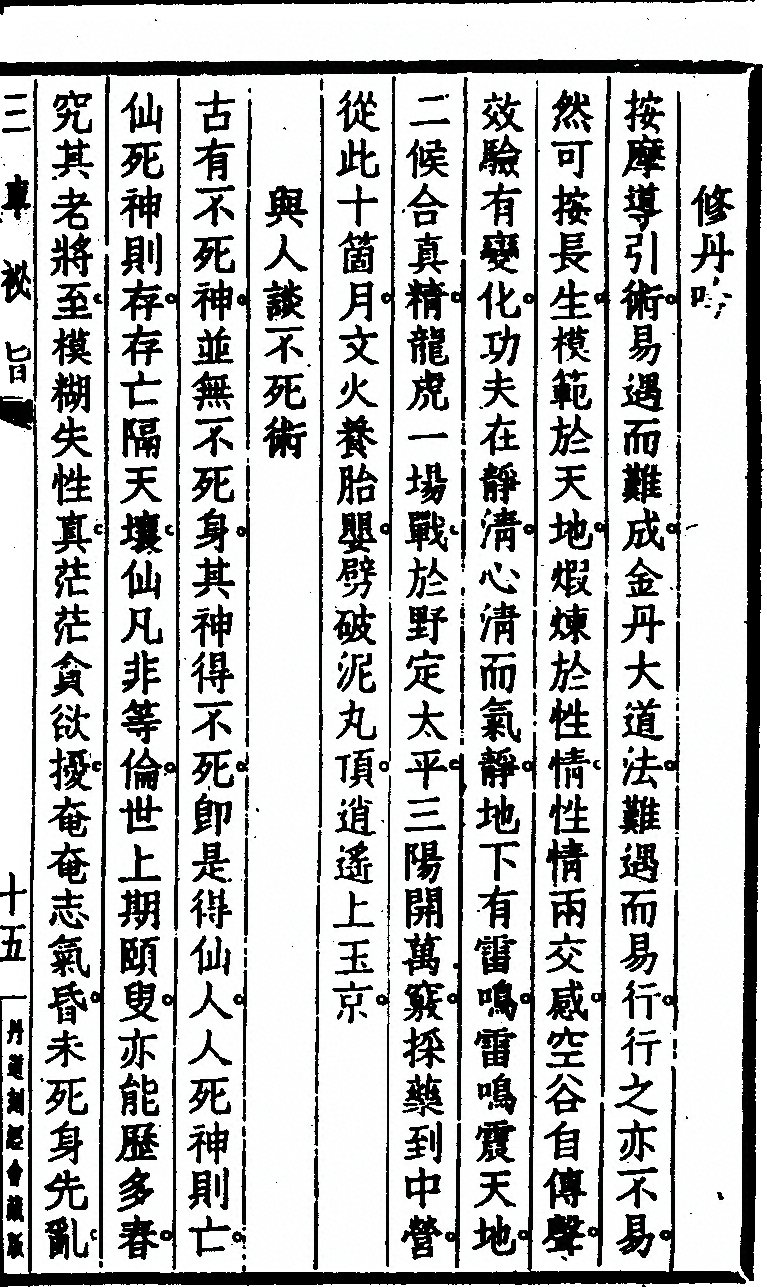 修丹吟
按摩導引術易遇而難成金丹大道法難遇而易行行之亦不易
然可按長生模範於天地煆煉於性情性情兩交感空谷自傳聲
效驗有變化功夫在靜淸心淸而氣靜地下有雷鳴雷鳴震天地
二候合真精龍虎一場戰於野定太平三陽開萬竅採藥到中營
從此十箇月文火養胎嬰劈破泥丸頂逍遙上玉京
與人談不死術
古有不死神並無不死身其神得不死卽是得仙人人死神則亡
仙死神則存存亡隔天壤仙凡非等倫世上期頤叟亦能歷多春
究其老將至模糊失性真茫茫貪欲擾奄奄志氣昏未死身先亂
三車祕旨
十五
丹道刻經會藏版